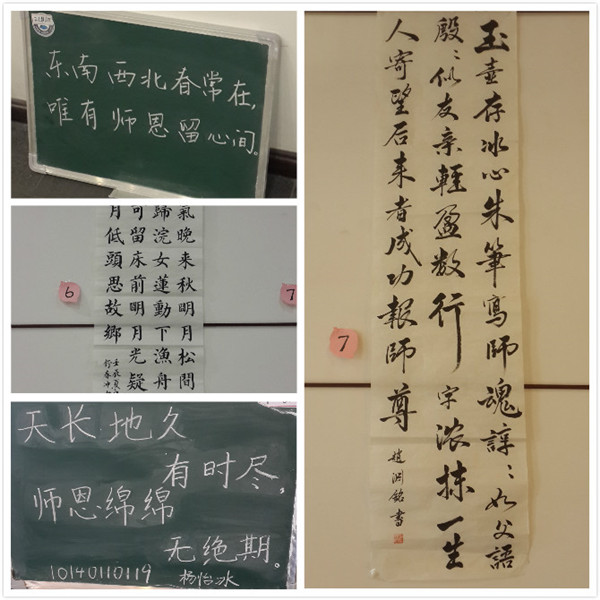 东南西北春常在,
唯有师恩留心间。
氣晚来秋明月松間
歸浣女蓮動下漁舟
可留床前明月光疑
月低頭思故鄉
6
7
天长地久
有时尽,
师恩绵绵
无绝期。
10140110119 杨怡冰
玉壺存冰心朱筆寫師魂諄〻如父語
殷〻似友亲輕盈数行字浓抹一生
人寄望后来者成功報師尊
趙渊銘書
7